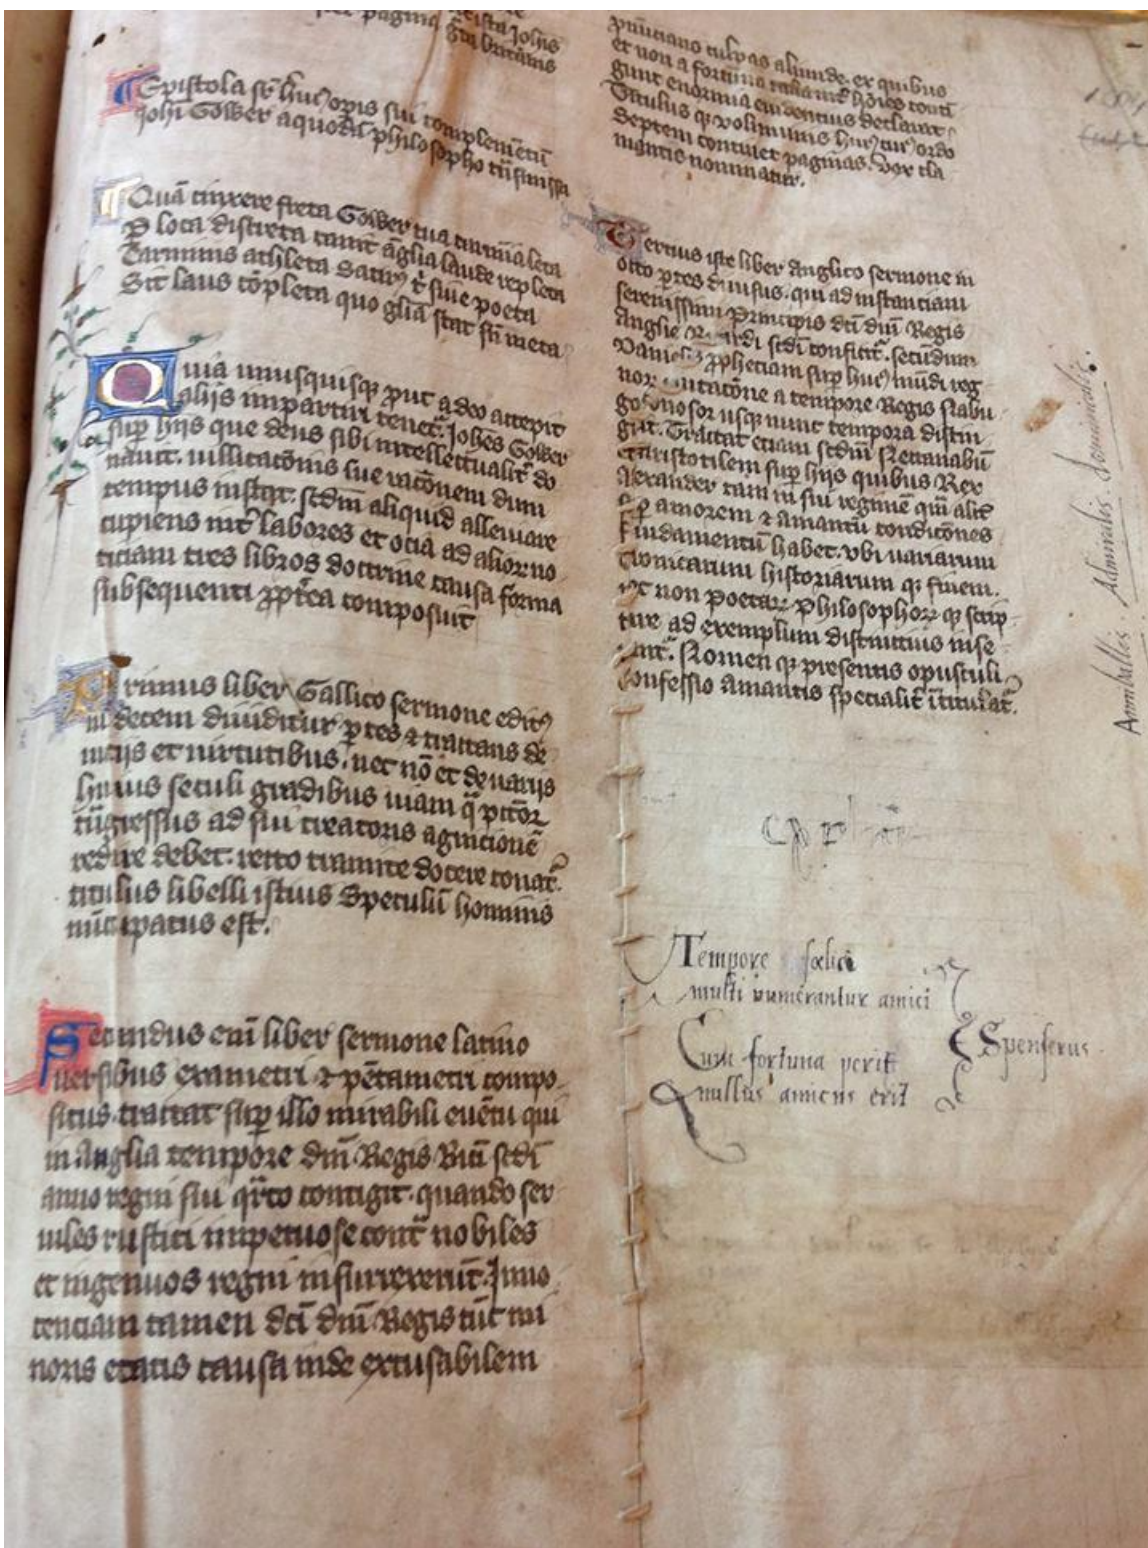 pagina g̃ta britānis
Epistola sr̄ huiꝰ opis sui complemētū
Johi Gower a quodā philosopho tūsmissa
Quā cinxere freta Gower tua carmīa leta
P loca discreta canit āglia laude repleta
Carminis athleta satirꝰ t̄ siue poeta
Sit laus cōpleta quo gl̄ia stat sn̄ meta
Quia unusquisqꝫ put a deo accepit
alijs impartiri tenet᷑. Johes Gower
sup hijs que deus sibi intellectualit᷑ do
nauit. villicacōnis sue racōnem dum
tempus instat. scdm aliquid alleuiare
cupiens int᷑ labores et ocia ad alior no
ticiam tres libros doctrine causa forma
subsequenti ꝓpt᷑ea composuit
Primus liber Gallico sermone editꝰ
in decem diuiditur ꝑtes ⁊ tractans de
uicijs et uirtutibus, nec nō et de uarijs
huius seculi gradibus uiam q̄ pctōr
tn̄sgressus ad sui creatoris agnicionē
redire debet. recto tramite docere conat᷑.
titulus libelli istius Speculū hominis
nūcupatus est.
Secundus em̄ liber sermone latino
uersibus exametri ⁊ pētametri compo-
situs. tractat sup illo mirabili euētu qui
in Anglia tempore dn̄i Regis Rici scdi
anno regni sui qr̄to contigit. quando ser
uiles rustici impetuose cont᷑ nobiles
et ingenuos regni insurrexerūt. Inno
cenciam tamen dc̄i dn̄i Regis tūc mi
noris etatis causa inde excusabilem
pnūciano culpas aliunde. ex quibus
et non a fortuna talia int᷑ hoīes conti
gunt enormia euidencius declarat.
Titulus qꝫ voluminis huiꝰ cuiꝰ ordo
Septem continet paginas. vox cla
mantis nominatur.
Tercius iste liber Anglico sermone in
octo ꝑtes diuisus. qui ad instanciam
serenissimi Principis dc̄i dn̄i Regis
Anglie scdi conficit᷑. secūdum
Danielis ꝓpheciam sup huiꝰ mūdi reg
nor mutacōne a tempore Regis Nabu
godonosor usqꝫ nunc tempora distin
git. Tractat eciam scdm Nectanabū
et Aristotilem sup hijs quibus Rex
Alexander tam in sui regimē qm̄ alit᷑
amorem ⁊ amantū condicōnes
fundamentū habet. vbi uariarum
Cronicarum historiarum qꝫ finem.
nec non poetar Philosophor qꝫ scrip
ture ad exemplum distinctius inse
Nomen qꝫ presentis opusculi
Confessio Amantis specialit᷑ ītitulat᷑.
Tempore fœlici
multi numerantur amici
Cum fortuna perit
nullus amicus erit
Spenserus.
Annibalis Admiralis dominicalis.